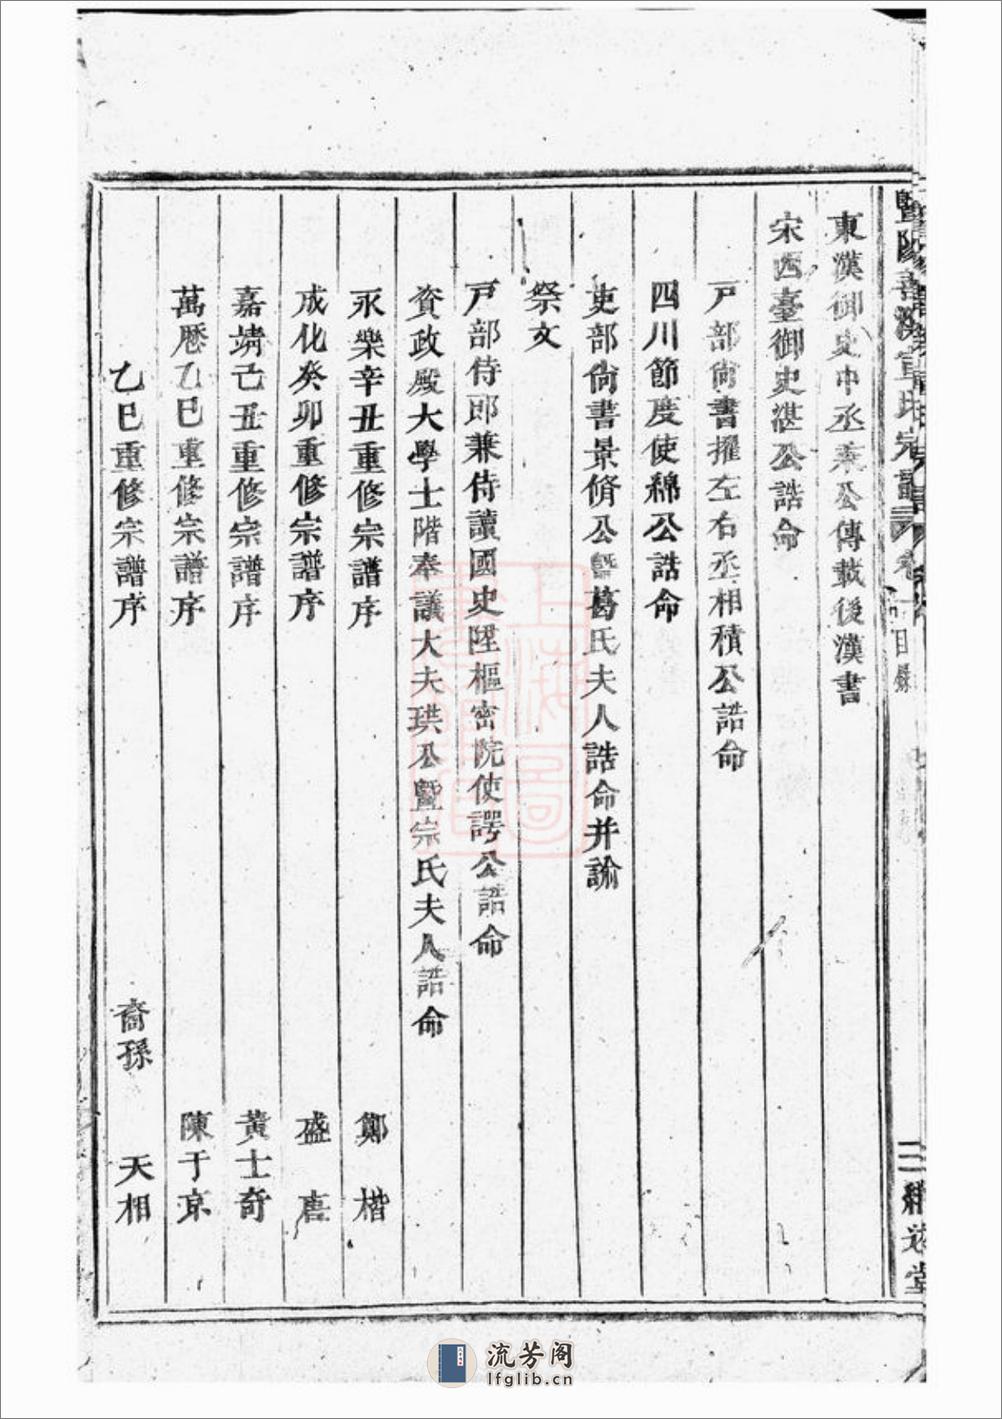 東漢御史中丞棄公傳載後漢書
宋西臺御史湛公誥命
戸部尙書擢左右丞相積公誥命
四川節度使綿公誥命
吏部尙書景脩公曁葛氏夫人誥命并諭
祭文
戸部侍郎兼侍讀國史陞樞密院使諤公誥命
資政殿大學士階奉議大夫珙公曁宗氏夫人誥命
永樂辛丑重修宗譜序 鄭楷
成化癸卯重修宗譜序 盛唐
嘉靖己丑重修宗譜序 黃士奇
萬厯乙巳重修宗譜序 陳于京
乙巳重修宗譜序 裔孫 天相
目錄
三
堂
上海圖書館
流芳阁
lfglib.cn